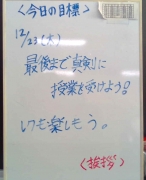 <今日の目標>
12/23(火)
最後まで真剣に
授業を受けよう!
いつも楽しもう。
<挨拶>